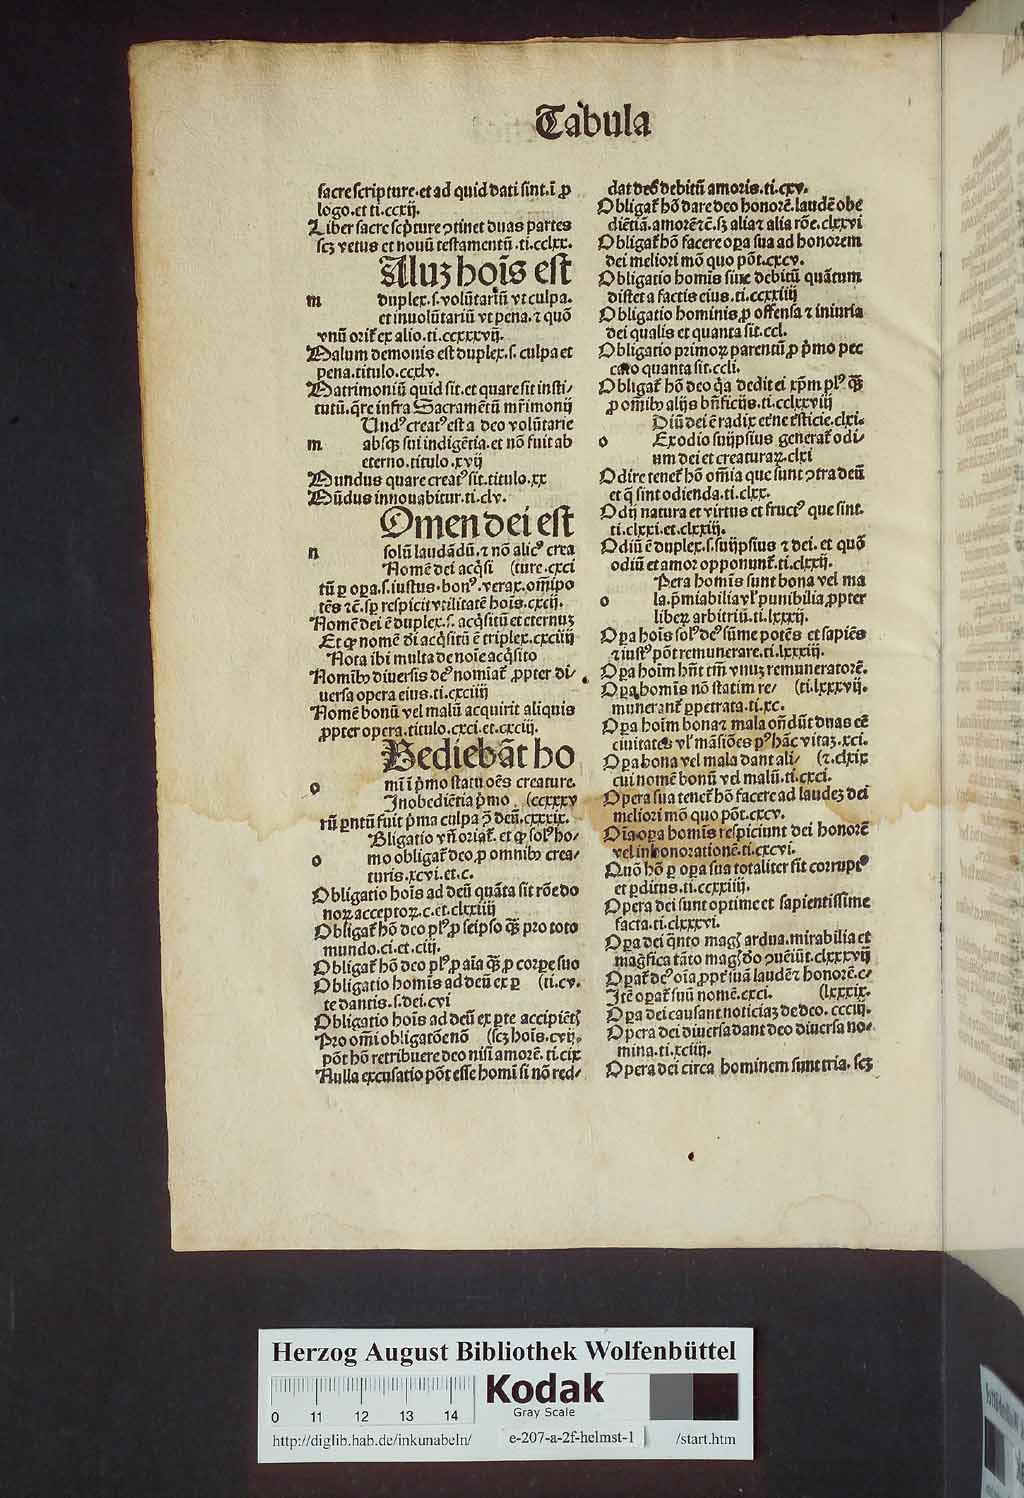 Tabula
sacre scripture. et ad quid dati sint. ī ꝓ
logo. et ti. ccxij.
Liber sacre scp̄ture ꝯtinet duas partes
scꝫ vetus et nouū testamentū. ti. cclxx.
Aluꝫ hoīs est
m duplex. s. volūtariū vt culpa.
et inuolūtariū vt pena. ⁊ quō
vnū orit᷑ ex alio. ti. ccxxxvij.
Malum demonis est duplex. s. culpa et
pena. titulo. ccxlv.
Matrimoniū quid sit. et quare sit insti/
tutū. q̄re infra Sacramētū mr̄imonij
Undꝰ creatꝰ est a deo volūtarie
m absqꝫ sui indigētia. et nō fuit ab
eterno. titulo. xvij
Mundus quare creatꝰ sit. titulo. xx
Mūdus innouabitur. ti. clv.
Omen dei est
n solū laudādū. ⁊ nō alicꝰ crea
Nomē dei acq̄si (ture. cxci
tū ꝑ oꝑa. s. iustus. bonꝰ. verax. om̄ipo
tēs ⁊ē. sꝑ respicit vtilitatē hoīs. cxcij.
Nomē dei ē duplex. s. acq̄sitū et eternuꝫ
Et qꝙ nomē dī acq̄sitū ē triplex. cxciiij
Nota ibi multa de noīe acq̄sito
Nomībꝰ diuersis deꝰ nomiat᷑ ꝓpter di/
uersa opera eius. ti. cxciiij
Nomē bonū vel malū acquirit aliquis
ꝓpter opera. titulo. cxci. et. cxciij.
Bediebāt ho
o mī ī p̄mo statu oēs creature.
Inobediētia p̄mo (ccxxxv
rū ꝑntū fuit p̄ma culpa ꝯ̄ deū. cxxxix.
Bligatio vn̄ oriat᷑. et qꝙ solꝰ ho/
o mo obligat᷑ deo. ꝓ omnibꝰ crea/
turis. xcvi. et. c.
Obligatio hoīs ad deū quāta sit rōe do
noꝝ acceptoꝝ. c. et. clxxiiij
Obligat᷑ hō deo plꝰ ꝓ seipso qꝫ̄ pro toto
mundo. ci. et. ciij.
Obligat᷑ hō deo plꝰ ꝓ aīa qꝫ̄ ꝓ corꝑe suo
Obligatio homīs ad deū ex ꝑ (ti. cv.
te dantis. s. dei. cvi
Obligatio hoīs ad deū ex ꝑte accipiētꝭ
Pro om̄i obligatōe nō (scꝫ hoīs. cvij.
pōt hō retribuere deo nisi amorē. ti. cix
Nulla excusatio pōt esse homī si nō red/
dat deo debitū amoris. ti. cxv.
Obligat᷑ hō dare deo honorē. laudē obe
diētiā. amorē ⁊ē. sꝫ alia ⁊ alia rōe. clxxvi
Obligat᷑ hō facere oꝑa sua ad honorem
dei meliori mō quo pōt. cxcv.
Obligatio homīs siue debitū quātum
distet a factis eius. ti. ccxxiiij
Obligatio hominis ꝓ offensa ⁊ iniuria
dei qualis et quanta sit. ccl.
Obligatio primoꝝ parentū ꝓ p̄mo pec
cato quanta sit. ccli.
Obligat᷑ hō deo q̄a dedit ei xp̄m plꝰ qꝫ̄
ꝓ om̄ibꝰ alijs bn̄ficijs. ti. cclxxviij
Diū dei ē radix etc̄ne tristicie. clxi.
o Ex odio suijpsius generat᷑ odi/
um dei et creaturaꝝ. clxi
Odire tenet᷑ hō om̄ia que sunt ꝯtra deū
et q̄ sint odienda. ti. clxx.
Odij natura et virtus et fructꝰ que sint.
ti. clxxi. et. clxxiij.
Odiū ē duplex. s. suijpsius ⁊ dei. et quō
odiū et amor opponunt᷑. ti. clxxij.
Pera homīs sunt bona vel ma
o la. p̄miabilia vl̓ punibilia ꝓpter
liberꝫ arbitriū. ti. lxxxij.
Oꝑa hoīs solꝰ deꝰ sūme potēs et sapiēs
⁊ iustꝰ pōt remunerare. ti. lxxxiij.
Oꝑa hoīm hn̄t tm̄ vnuꝫ remuneratorē.
Oꝑa homīs nō statim re/ (ti. lxxxvij.
munerant᷑ ꝑpetrata. ti. xc.
Oꝑa hoīm bona ⁊ mala on̄dūt duas eē
ciuitates vl̓ māsiōes pꝰ hāc vitaꝫ. xci.
Oꝑa bona vel mala dant ali/ (⁊. clxix
cui nomē bonū vel malū. ti. cxci.
Opera sua tenet᷑ hō facere ad laudeꝫ dei
meliori mō quo pōt. cxcv.
Oīa oꝑa homīs respiciunt dei honorē
vel inhonorationē. ti. cxcvi.
Quō hō ꝑ oꝑa sua totaliter fīt corruptꝰ
et ꝑditus. ti. ccxxiiij.
Opera dei sunt optime et sapientissime
facta. ti. clxxxvi.
Oꝑa dei q̄nto magꝭ ardua. mirabilia et
maḡfica tāto magꝭ dō ꝯueniūt. clxxxvij
Oꝑat᷑ deꝰ oīa ꝓpt᷑ suā laudē ⁊ honorē. c/
Itē oꝑat᷑ suū nomē. cxci. (lxxxix.
Oꝑa dei causant noticiaꝫ de deo. ccciij.
Opera dei diuersa dant deo diuersa no/
mina. ti. xciiij.
Opera dei circa hominem sunt tria. scꝫ
Herzog August Bibliothek Wolfenbüttel
0 11 12 13 14
Kodak
Gray Scale
http://diglib.hab.de/inkunabeln/ e-207-a-2f-helmst-1 /start.htm